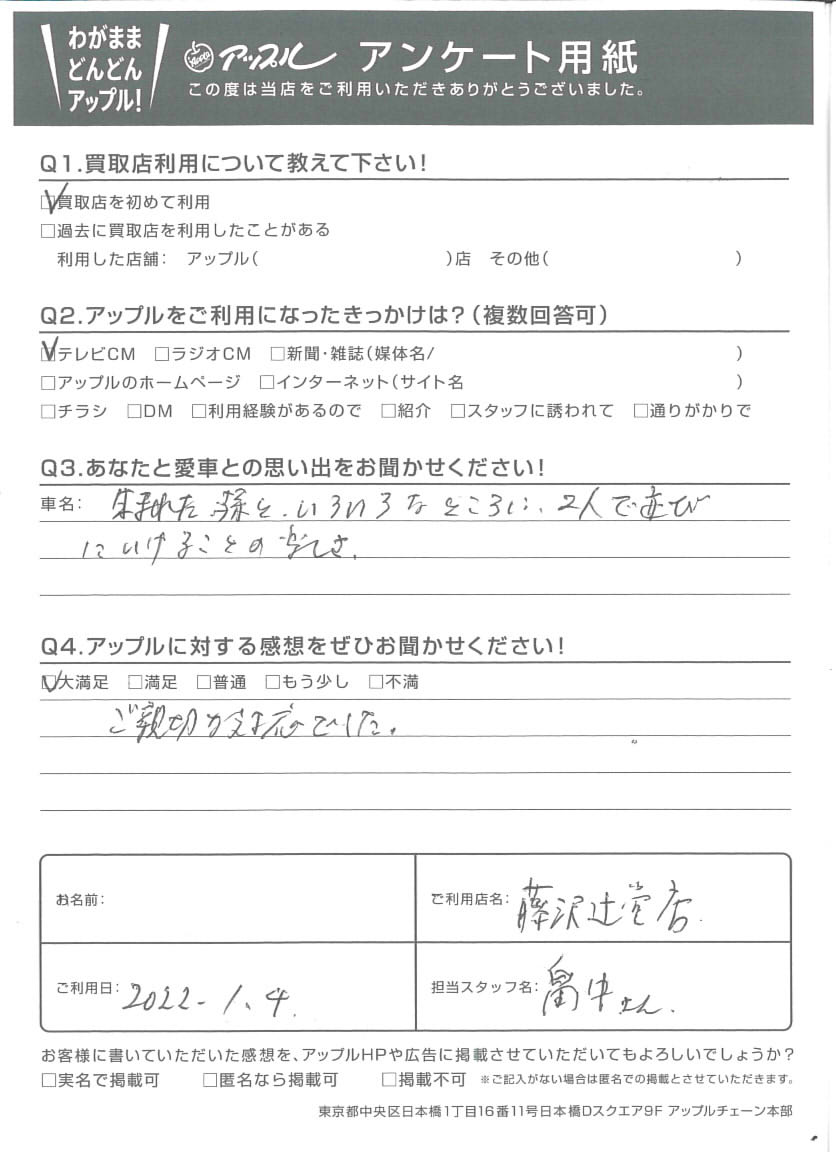 わがまま
どんどん
アップル!
Apple アップル アンケート用紙
この度は当店をご利用いただきありがとうございました。
Q1.買取店利用について教えて下さい!
☑買取店を初めて利用
□過去に買取店を利用したことがある
利用した店舗: アップル( )店 その他( )
Q2.アップルをご利用になったきっかけは?(複数回答可)
☑テレビCM □ラジオCM □新聞・雑誌(媒体名/ )
□アップルのホームページ □インターネット(サイト名 )
□チラシ □DM □利用経験があるので □紹介 □スタッフに誘われて □通りがかりで
Q3.あなたと愛車との思い出をお聞かせください!
車名: 生まれた孫と、いろいろなところに、2人で遊び
にいけることの楽しさ.
Q4.アップルに対する感想をぜひお聞かせください!
☑大満足 □満足 □普通 □もう少し □不満
ご親切な対応でした。
お名前:
ご利用店名: 藤沢辻堂店.
ご利用日: 2022-1.4.
担当スタッフ名: 畠中さん.
お客様に書いていただいた感想を、アップルHPや広告に掲載させていただいてもよろしいでしょうか?
□実名で掲載可 □匿名なら掲載可 □掲載不可 ※ご記入がない場合は匿名での掲載とさせていただきます。
東京都中央区日本橋1丁目16番11号日本橋Dスクエア9F アップルチェーン本部